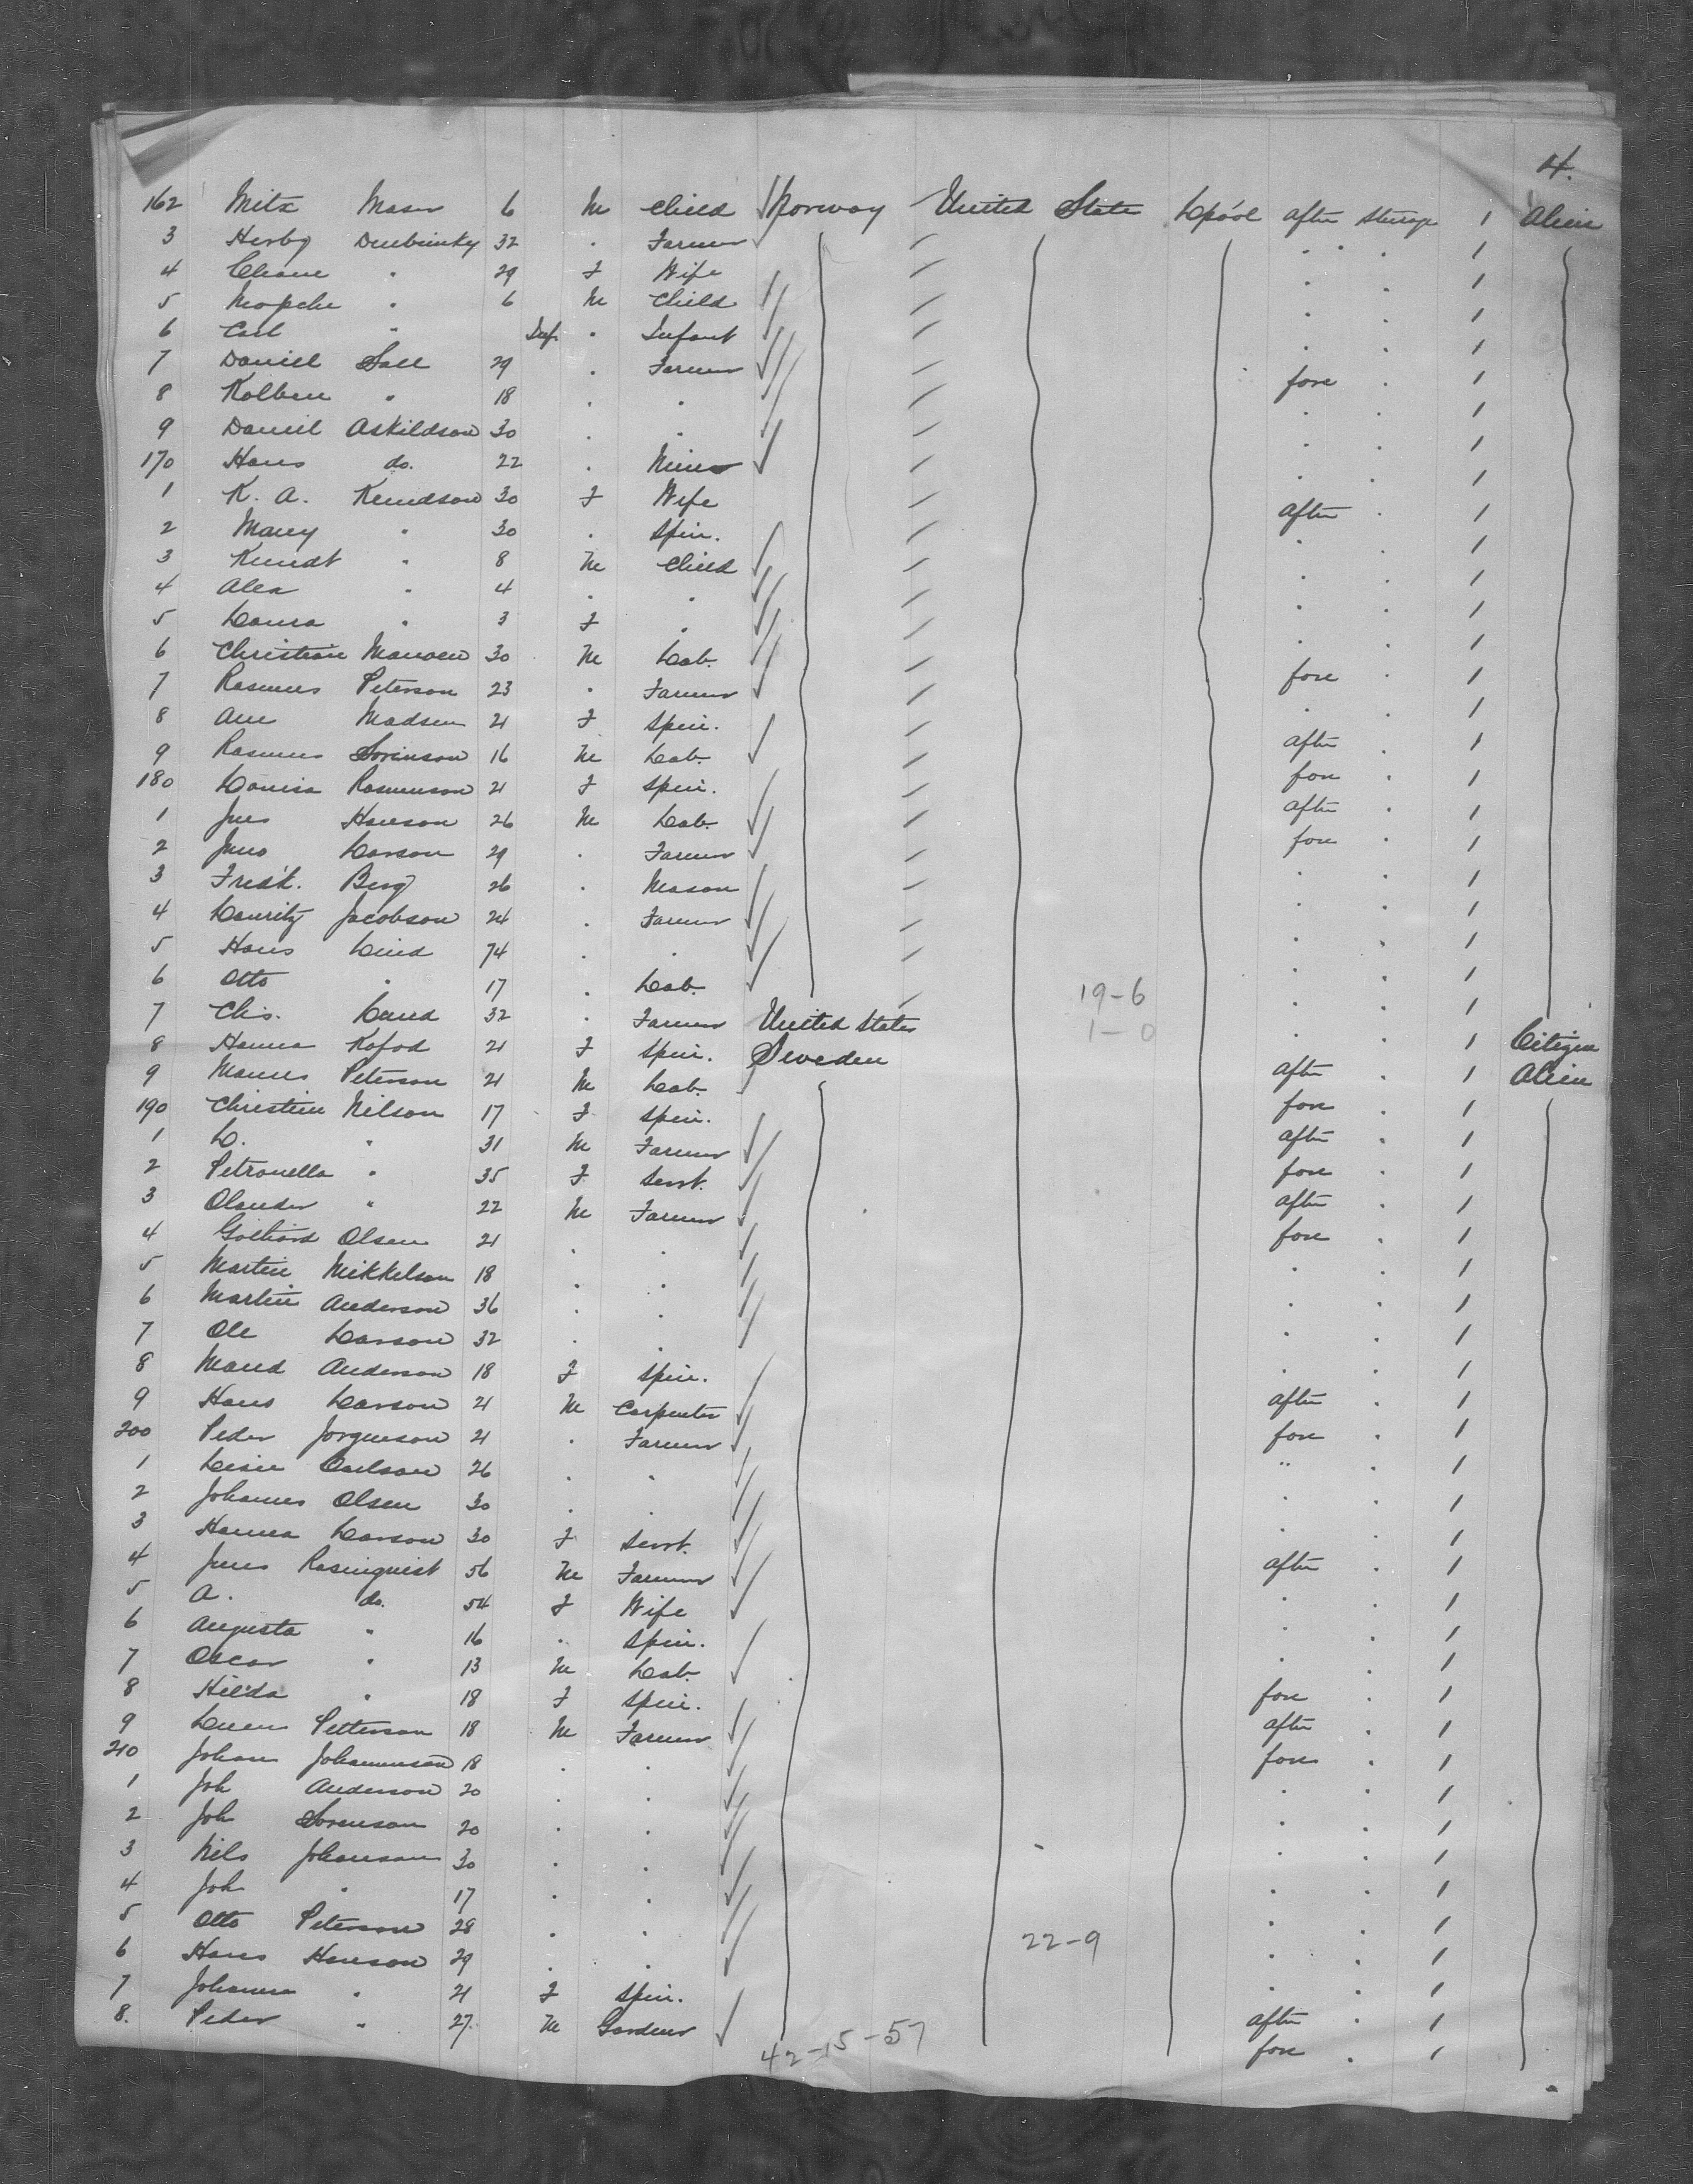 4.
162 Mitx Maser 6 M Child Norway United State Lpool after sturage 1 Alien
3 Hersby Dembrinky 32 . Farmer 1
4 Chane " 29 F Wife . . 1
5 Mopche " 6 M Child . . 1
6 Carl " Inf. " Infant . . 1
7 Daniel Sall 29 . Farmer fore . 1
8 Kolben " 18 . . . . 1
9 Daniel Askildson 30 . . . . 1
170 Hans do. 22 . Miner . . 1
1 K. A. Knudson 30 F Wife after . 1
2 Mary " 30 . Spin. . . 1
3 Knudt " 8 M Child . . 1
4 Alex " 4 . . . . 1
5 Laura " 3 F . . . 1
6 Christian 30 M Lab. fore . 1
7 Rasmus Peterson 23 . Farmer . . 1
8 Ane Madsen 21 F Spin. after . 1
9 Rasmus Sorinson 16 M Lab. fore . 1
180 Louisa Rasmunson 21 F Spin. after . 1
1 Jens Hanson 26 M Lab. fore . 1
2 Jens Larson 29 . Farmer . . 1
3 Fredk. Berg 26 . Mason . . 1
4 Lauritz Jacobson 24 . Farmer . . 1
5 Hans Lind 74 . . . . 1
6 Otto " 17 . Lab. 19-6 . . 1
7 Chs. Lund 32 . Farmer United States 1-0 . . 1 Citizen
8 Hanna Kofod 21 F Spin. Sweden after . 1 Alien
9 Mauns Peterson 21 M Lab. fore . 1
190 Christin Nilson 17 F Spin. after . 1
1 L. " 31 M Farmer fore . 1
2 Petronella " 35 F Servt. after . 1
3 Olander " 22 M Farmer fore . 1
4 Olsen 21 . . . . 1
5 Martin Mikkelson 18 . . . . 1
6 Martin Anderson 36 . . . . 1
7 Ole Larson 32 . . . . 1
8 Maud Anderson 18 F Spin. after . 1
9 Hans Larson 21 M Carpenter fore . 1
200 Peder Jorgenson 21 . Farmer " . 1
1 Carlson 26 . . . . 1
2 Johannes Olsen 30 . . . . 1
3 Hanna Larson 30 F Servt. after . 1
4 Jens Rosinquist 56 M Farmer . . 1
5 A. do. 54 F Wife . . 1
6 Augusta " 16 . Spin. . . 1
7 Oscar " 13 M Lab. fore . 1
8 Hilda " 18 F Spin. after . 1
9 Petterson 18 M Farmer fore . 1
210 Johan Johannenson 18 . . . . 1
1 Joh Anderson 20 . . . . 1
2 Joh Sorenson 20 . . . . 1
3 Nils Johanson 30 . . . . 1
4 Joh " 17 . . . . 1
5 Otto Peterson 28 . . . . 1
6 Hans Hanson 29 . . 22-9 . . 1
7 Johanna " 21 F Spin. after . 1
8. Peder " 27. M Gardener fore . 1
42-15-57